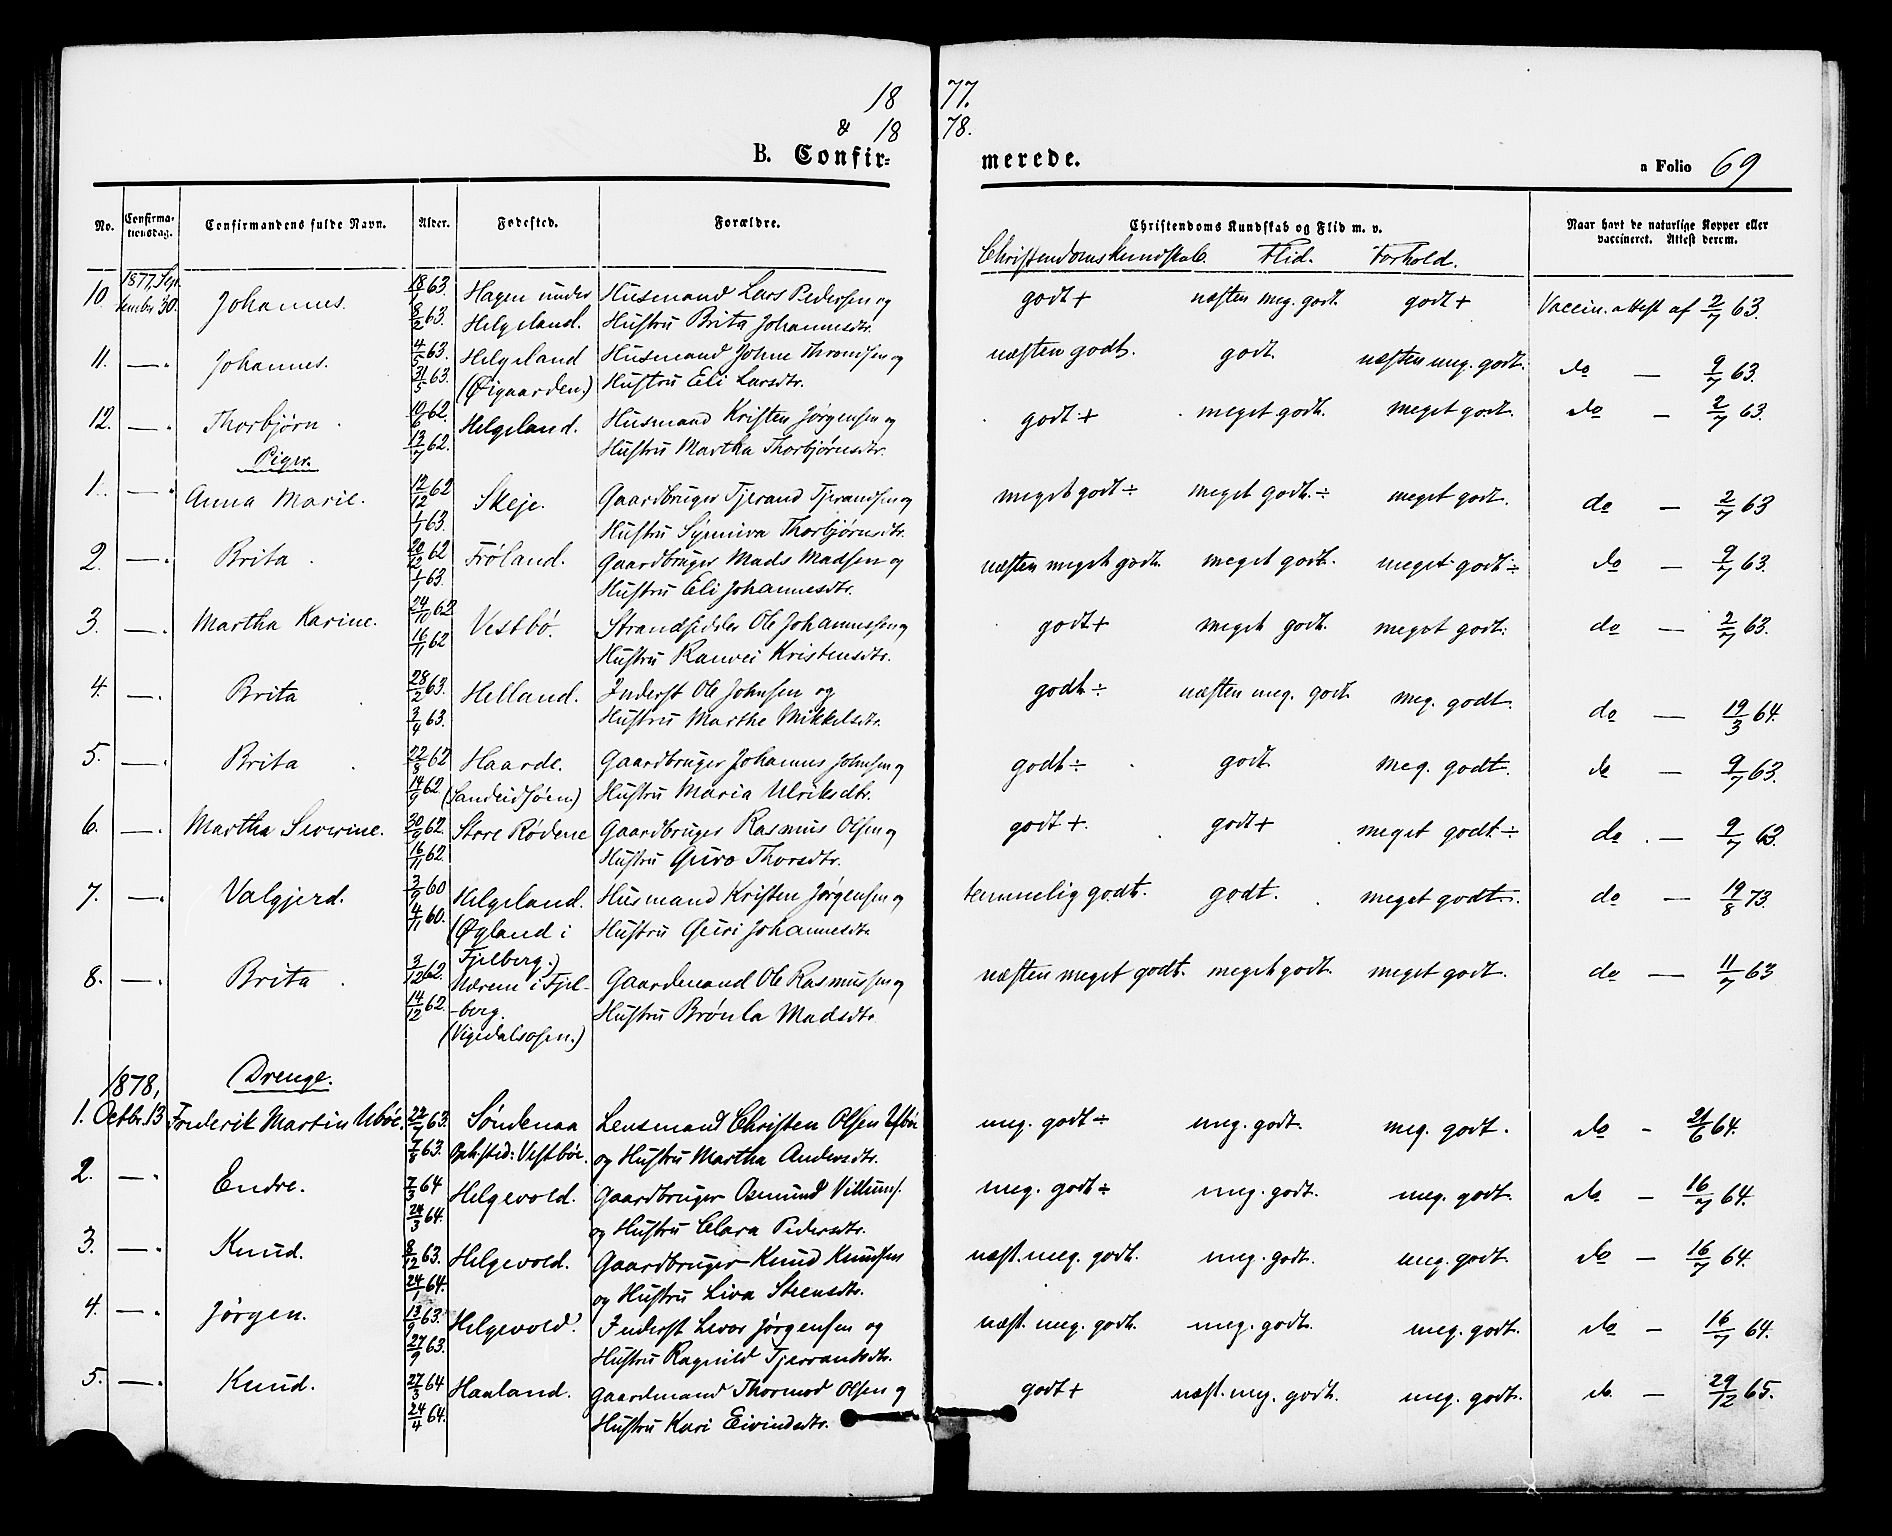 18 77.
& 18 78.
B. Confir= merede.
a Folio 69
No. Confirma-tionsdag. Confirmandens fulde Navn. Alder. Fødested. Forældre. Christendoms Kundskab og Flid m. v. Naar havt de naturlige Kopper eller vaccineret. Attest derom.
Christendomskundskab. Flid. Forhold.
10. 1877, Sep- 18/1 63. Hagen under Husmand Lars Pedersen og godt + næsten meg. godt. godt + Vaccin. attest af 2/7 63.
tember 30. Johannes. 8/2 63. Helgeland. Hustru Brita Johannesdtr.
11. — . Johannes. 4/5 63. Helgeland Husmand Johne Throndsen og næsten godt. godt næsten meg. godt. do — 9/7 63.
31/5 63. (Øigaarden.) Hustru Eli Larsdtr.
12. — . Thorbjørn. 10/6 62. Helgeland. Husmand Kristen Jørgensen og godt + meget godt. meget godt. do — 2/7 63.
13/7 62. Hustru Martha Thorbjørnsdtr.
Piger.
1. — . Anna Marie. 12/12 62 Skeje. Gaardbruger Tjerand Tjerandsen og meget godt ÷ meget godt. ÷ meget godt. do — 2/7 63
1/1 63. Hustru Synniva Thorbjørnsdtr.
2. — . Brita. 20/12 62 Frøland. Gaardbruger Mads Madsen og næsten meget godt. meget godt. meget godt ÷ do — 9/7 63.
1/1 63. Hustru Eli Johannesdtr.
3. — . Martha Karine. 24/10 62 Vestbø. Strandsidder Ole Johannessen og godt + meget godt. meget godt. do — 2/7 63.
16/11 62 Hustru Ranvei Kristensdtr.
4. — . Brita 28/2 63. Helland. Inderst Ole Johnsen og godt ÷ næsten meg. godt. meg. godt. do — 19/3 64.
3/4 63. Hustru Marthe Mikkelsdtr.
5. — . Brita 22/8 62 Haarde. Gaardbruger Johannes Johnsen og godt ÷ godt meg. godt. do — 9/7 63.
14/9 62 (Sandeidsøen.) Hustru Maria Ulriksdtr.
6. — . Martha Severine. 30/9 62. Store Rødene Gaardbruger Rasmus Olsen og godt +. godt + meget godt. ÷ do — 9/7 63.
16/11 62. Hustru Guro Thorsdtr.
7. — . Valgjerd. 3/9 60 Helgeland. Husmand Kristen Jørgensen og temmelig godt. godt. meget godt. do — 19/8 73.
4/11 60. (Øgland i Hustru Guri Johannesdtr
Fjelberg.)
8. — . Brita. 3/12 62. Nærem i Fjel- Gaardmand Ole Rasmussen og næsten meget godt. meget godt. meget godt. do — 11/7 63
14/12 62. -berg. Hustru Brønla Madsdtr
(Vigedalsosen.)
1878, Drenge.
1. Octbr. 13 Frederik Martin Ubøe. 22/7 63. Søndenaa Lensmand Christen Olsen Ubøe meg. godt ÷ meg. godt. meg. godt. do - 21/6 64.
7/8 63. Opholsted: Vestbøe. og Hustru Martha Andersdtr.
2. — . Endre. 7/3 64 Helgevold. Gaardbruger Osmund Villums. meg. godt ÷ meg. godt. meg. godt. do — 16/7 64.
24/3 64. og Hustru Clara Pedersdtr.
3. — . Knud. 8/12 63. Helgevold. Gaardbruger Knud Knudsen næst. meg. godt. meg. godt. meg. godt. do — 16/7 64.
24/1 64. og Hustru Liva Steensdtr.
4. — . Jørgen. 13/9 63. Helgevold. Inderst Ivar Jørgensen og næst. meg. godt. meg. godt. meg. godt. do — 16/7 64.
27/9 63. Hustru Ragnild Tjerrandsdtr.
5. — . Knud. 27/3 64 Haaland. Gaardmand Thormod Olsen og godt + næst. meg. godt. meg. godt. do — 29/12 65.
24/4 64. Hustru Kari Eivindsdtr.